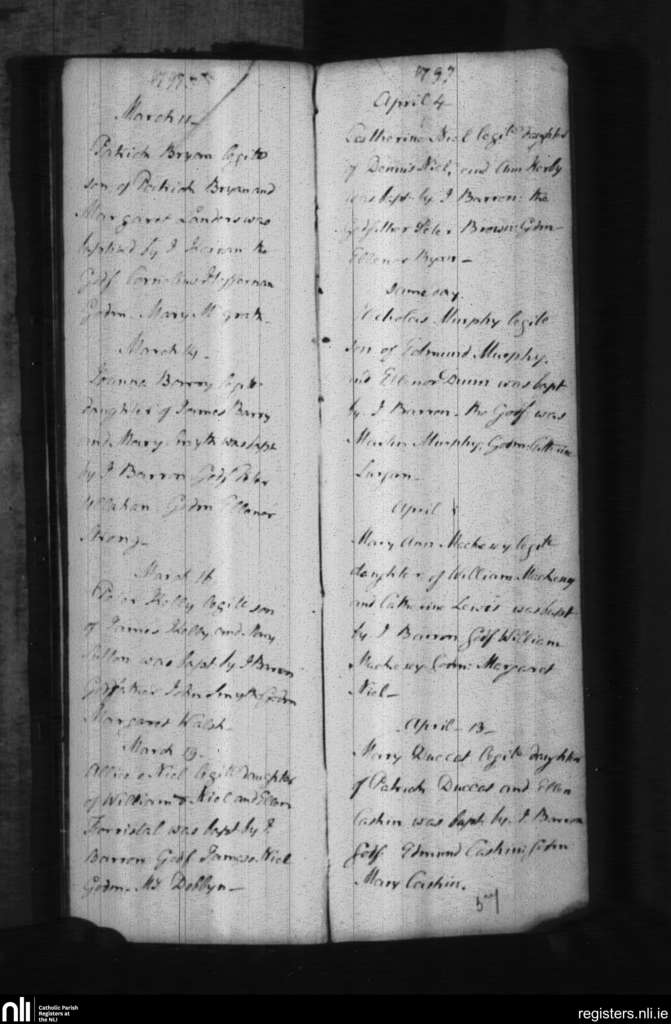 1797
March 11
Patrick Bryan legitt
son of Patrick Bryan and
Margaret Landers was
baptised by J the
Godf Cornelius Heffernan
Godm Mary McGrath
March 14
Joanna Barry legitt
daughter of James Barry
and Mary Smyth was bapt
by J Barron Godf Peter
Godm Ellenor
Strong
March 18
Peter Kelly legitt son
of James Kelly and Mary
Sutton was bapt by J Barron
Godfather John Smyth Godm
Margaret Walsh
March 19
Niel legitt daughter
of William Niel and Ellen
Forristal was bapt by J
Barron Godf James Niel
Godm Dobbyn
1797
April 4
Catherine Niel legitt daughter
of Dennis Niel, and Ann Kerby
was bapt by J Barron the
Godfather Peter Brown Godm
Ellenor Byan
same day
Nicholas Murphy legitt
son of Edmund Murphy
and Ellenor Dunn was bapt
by J Barron the Godf was
Martin Murphy Godm Catherine
April 8
Mary Ann Mackesy legitt
daughter of William Mackesy
and Catherine Lewis was bapt
by J Barron Godf William
Mackesy Godm Margaret
Niel
April 13
Mary Duccat legitt daughter
of Patrick Duccat and Ellen
Cashin was bapt by J Barron
Godf Edmund Cashin Godm
Mary Cashin.
nli
Catholic Parish
Registers at
the NLI
registers.nli.ie